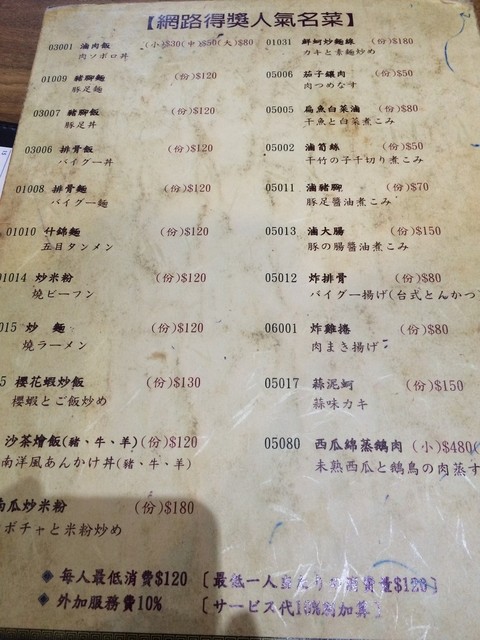 【網路得獎人氣名菜】
03001 滷肉飯 (小)$30(中)$50(大)$80
肉ソボロ丼
01009 豬腳麵 (份)$120
豚足麺
03007 豬腳飯 (份)$120
豚足丼
03006 排骨飯 (份)$120
バイグー丼
01008 排骨麵 (份)$120
バイグー麺
01010 什錦麵 (份)$120
五目タンメン
01014 炒米粉 (份)$120
燒ビーフン
015 炒 麵 (份)$120
燒ラーメン
5 櫻花蝦炒飯 (份)$130
櫻蝦とご飯炒め
沙茶燴飯(豬、牛、羊)(份)$120
南洋風あんかけ丼(豬、牛、羊)
南瓜炒米粉 (份)$180
ボチャと米粉炒め
01031 鮮蚵炒麵線 (份)$180
カキと素麺炒め
05006 茄子鑲肉 (份)$50
肉つめなす
05005 扁魚白菜滷 (份)$80
干魚と白菜煮こみ
05002 滷筍絲 (份)$50
干竹の子千切り煮こみ
05011 滷豬腳 (份)$70
豚足醬油煮こみ
05013 滷大腸 (份)$150
豚の腸醬油煮こみ
05012 炸排骨 (份)$80
バイグー揚げ(台式とんかつ
06001 炸雞捲 (份)$80
肉まき揚げ
05017 蒜泥蚵 (份)$150
蒜味カキ
05080 西瓜綿蒸鵝肉 (小)$480(
未熟西瓜と鵝鳥の肉蒸す
◆ 每人最低消費$120 〔最低一人 消費量$120〕
◆ 外加服務費10% 〔サービス代10% 加算〕